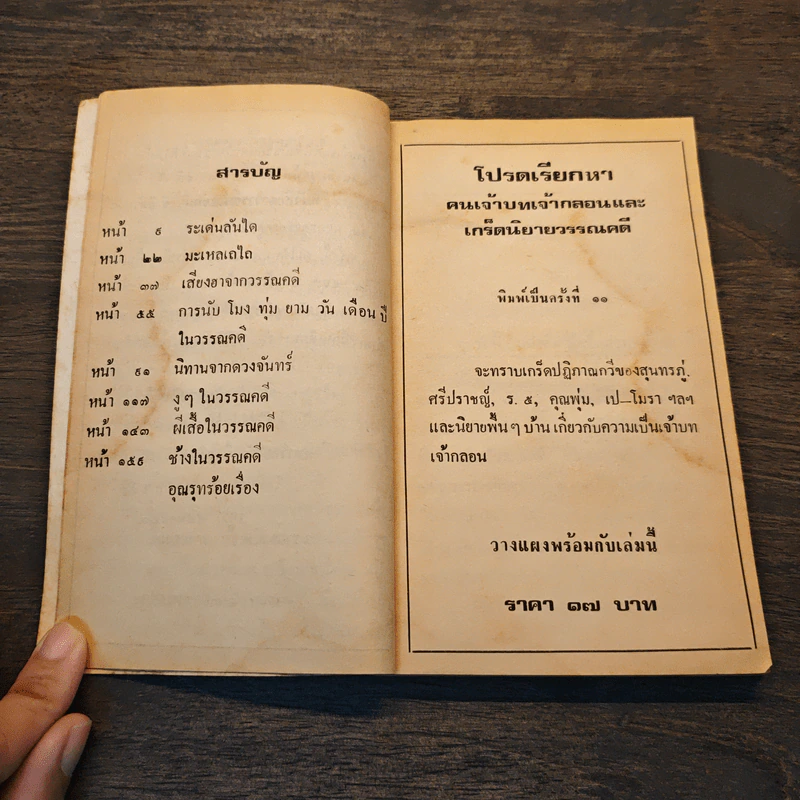 สารบัญ
หน้า ๙ ระเด่นลันได
หน้า ๒๒ มะเหลเถไถ
หน้า ๓๗ เสียงฮาจากวรรณคดี
หน้า ๕๕ การนับ โมง ทุ่ม ยาม วัน เดือน ปี
ในวรรณคดี
หน้า ๙๑ นิทานจากดวงจันทร์
หน้า ๑๑๗ งู ๆ ในวรรณคดี
หน้า ๑๔๓ ผีเสื้อในวรรณคดี
หน้า ๑๕๙ ช้างในวรรณคดี
อุณรุทร้อยเรื่อง
โปรดเรียกหา
คนเจ้าบทเจ้ากลอนและ
เกร็ดนิยายวรรณคดี
พิมพ์เป็นครั้งที่ ๑๑
จะทราบเกร็ดปฏิภาณกวีของสุนทรภู่.
ศรีปราชญ์, ร. ๕, คุณพุ่ม, เป—โมรา ฯลฯ
และนิยายพื้น ๆ บ้าน เกี่ยวกับความเป็นเจ้าบท
เจ้ากลอน
วางแผงพร้อมกับเล่มนี้
ราคา ๑๗ บาท